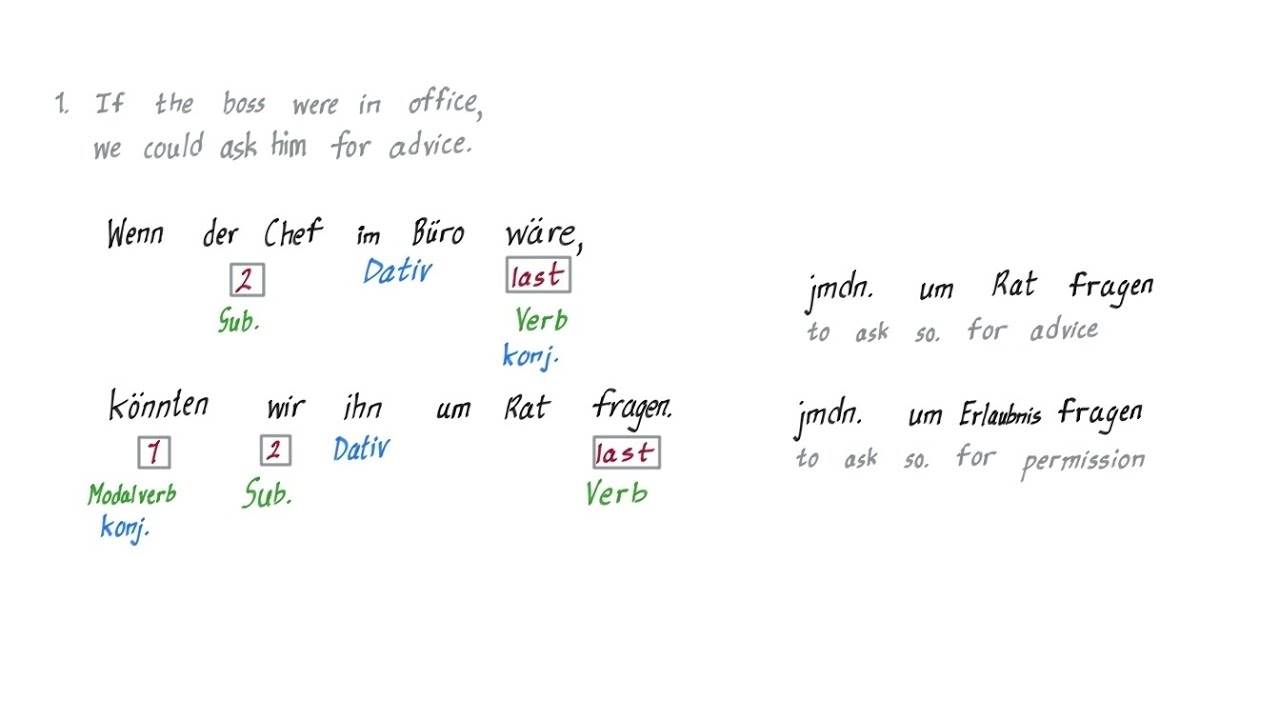 1. If the boss were in office,
we could ask him for advice.
Wenn der Chef im Büro wäre,
2 Dativ last
Sub. Verb
konj.
könnten wir ihn um Rat fragen.
1 2 Dativ last
Modalverb Sub. Verb
konj.
jmdn. um Rat fragen
to ask so. for advice
jmdn. um Erlaubnis fragen
to ask so. for permission